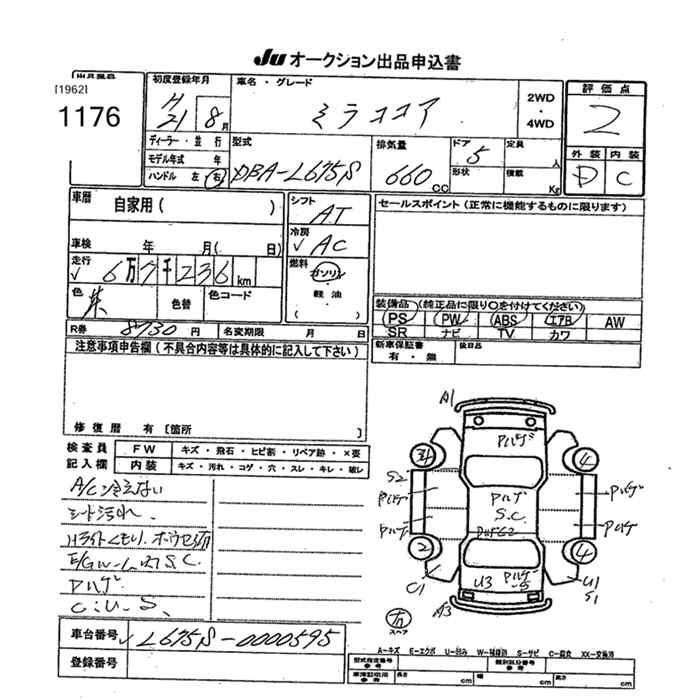 Ju オークション出品申込書
出品番号
[1962]
1176
初度登録年月
H
21 8月
車名・グレード
ミラココア
2WD
・
4WD
評価点
2
外装 内装
D C
ディーラー・並行
モデル年式 年
ハンドル 左 右
型式
DBA-L675S
排気量
660 CC
ドア
5
形状
定員
人
積載
Kg
車歴
自家用( )
車検 年 月( 日)
走行
√ 6万7千236km
色
色替
色コード
R券 8730円
名変期限 月 日
シフト
AT
冷房
√ AC
燃料
ガソリン
・
軽油
( )
セールスポイント(正常に機能するものに限ります)
装備品 (純正品に限り○を付けてください)
PS PW ABS エアB AW
SR ナビ TV カワ
新車保証書
有・無
後日品
注意事項申告欄(不具合内容等は具体的に記入して下さい)
修復歴 有[箇所 ]
検査員
記入欄
FW キズ・飛石・ヒビ割・リペア跡・×要
内装 キズ・汚れ・コゲ・穴・スレ・キレ・破レ
A/C冷えない
シート汚れ.
Hライトくもり.
S.C.
Pハゲ
C.U.S.
車台番号 √ L675S-0000595
登録番号
A1
Pハゲ
3
4
S2
Pハゲ
Pハゲ
Pハゲ
S.C.
Pハゲ
Pハゲ
2
4
C1
U3
Pハゲ
S
U1
S1
A3
スペア
A-キズ E-エクボ U-凹み W-補修跡 S-サビ C-腐食 XX-交換済
型式指定番号
参考
類別区分番号
参考
車庫証明用
参考
長さ cm
幅 cm
高さ cm